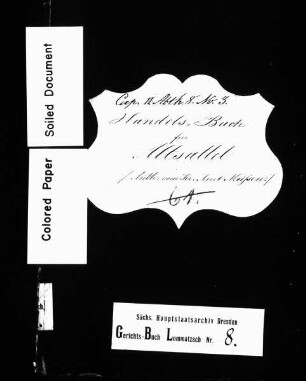 Soiled Document
Colored Paper
Cap. II. Abth. 8. No. 3.
Handels-Buch
für
Altsattel
61.
Sächs. Hauptstaatsarchiv Dresden
Gerichts-Buch Lommatzsch Nr. 8.